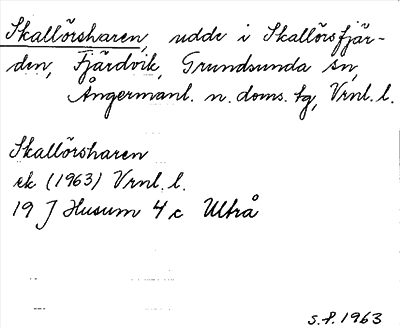 Skallörsharen, udde i Skallörsfjär-
den, Fjärdvik, Grundsunda sn,
Ångermanl. n. doms. tg, Vrnl. l.
Skallörsharen
ek (1963) Vrnl. l.
19 J Husum 4 c Ultrå
S.F. 1963